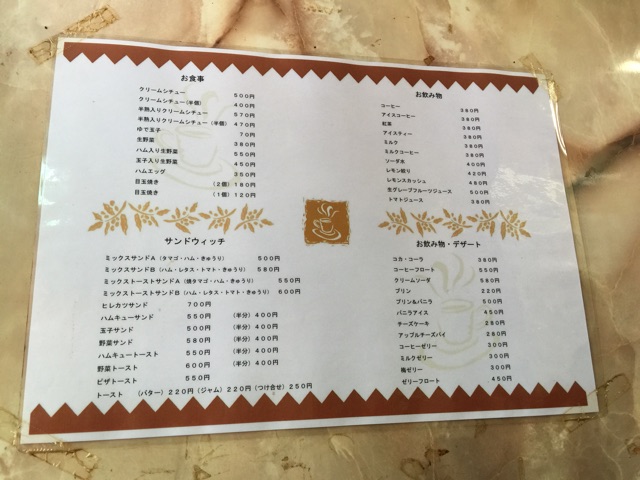 お食事
クリームシチュー 500円
クリームシチュー(半個) 400円
半熟入りクリームシチュー 570円
半熟入りクリームシチュー(半個) 470円
ゆで玉子 70円
生野菜 380円
ハム入り生野菜 550円
玉子入り生野菜 450円
ハムエッグ 350円
目玉焼き (2個) 180円
目玉焼き (1個) 120円
サンドウィッチ
ミックスサンドA (タマゴ・ハム・きゅうり) 500円
ミックスサンドB (ハム・レタス・トマト・きゅうり) 580円
ミックストーストサンドA (焼タマゴ・ハム・きゅうり) 550円
ミックストーストサンドB (ハム・レタス・トマト・きゅうり) 600円
ヒレカツサンド 700円
ハムキューサンド 550円 (半分) 400円
玉子サンド 500円 (半分) 400円
野菜サンド 580円 (半分) 400円
ハムキュートースト 550円 (半分) 400円
野菜トースト 600円 (半分) 400円
ピザトースト 550円
トースト (バター) 220円 (ジャム) 220円 (つけ合せ) 250円
お飲み物
コーヒー 380円
アイスコーヒー 380円
紅茶 380円
アイスティー 380円
ミルク 380円
ミルクコーヒー 380円
ソーダ水 400円
レモン絞り 420円
レモンスカッシュ 480円
生グレープフルーツジュース 500円
トマトジュース 380円
お飲み物・デザート
コカ・コーラ 380円
コーヒーフロート 550円
クリームソーダ 580円
プリン 220円
プリン&バニラ 500円
バニラアイス 450円
チーズケーキ 280円
アップルチーズパイ 280円
コーヒーゼリー 300円
ミルクゼリー 300円
梅ゼリー 300円
ゼリーフロート 450円